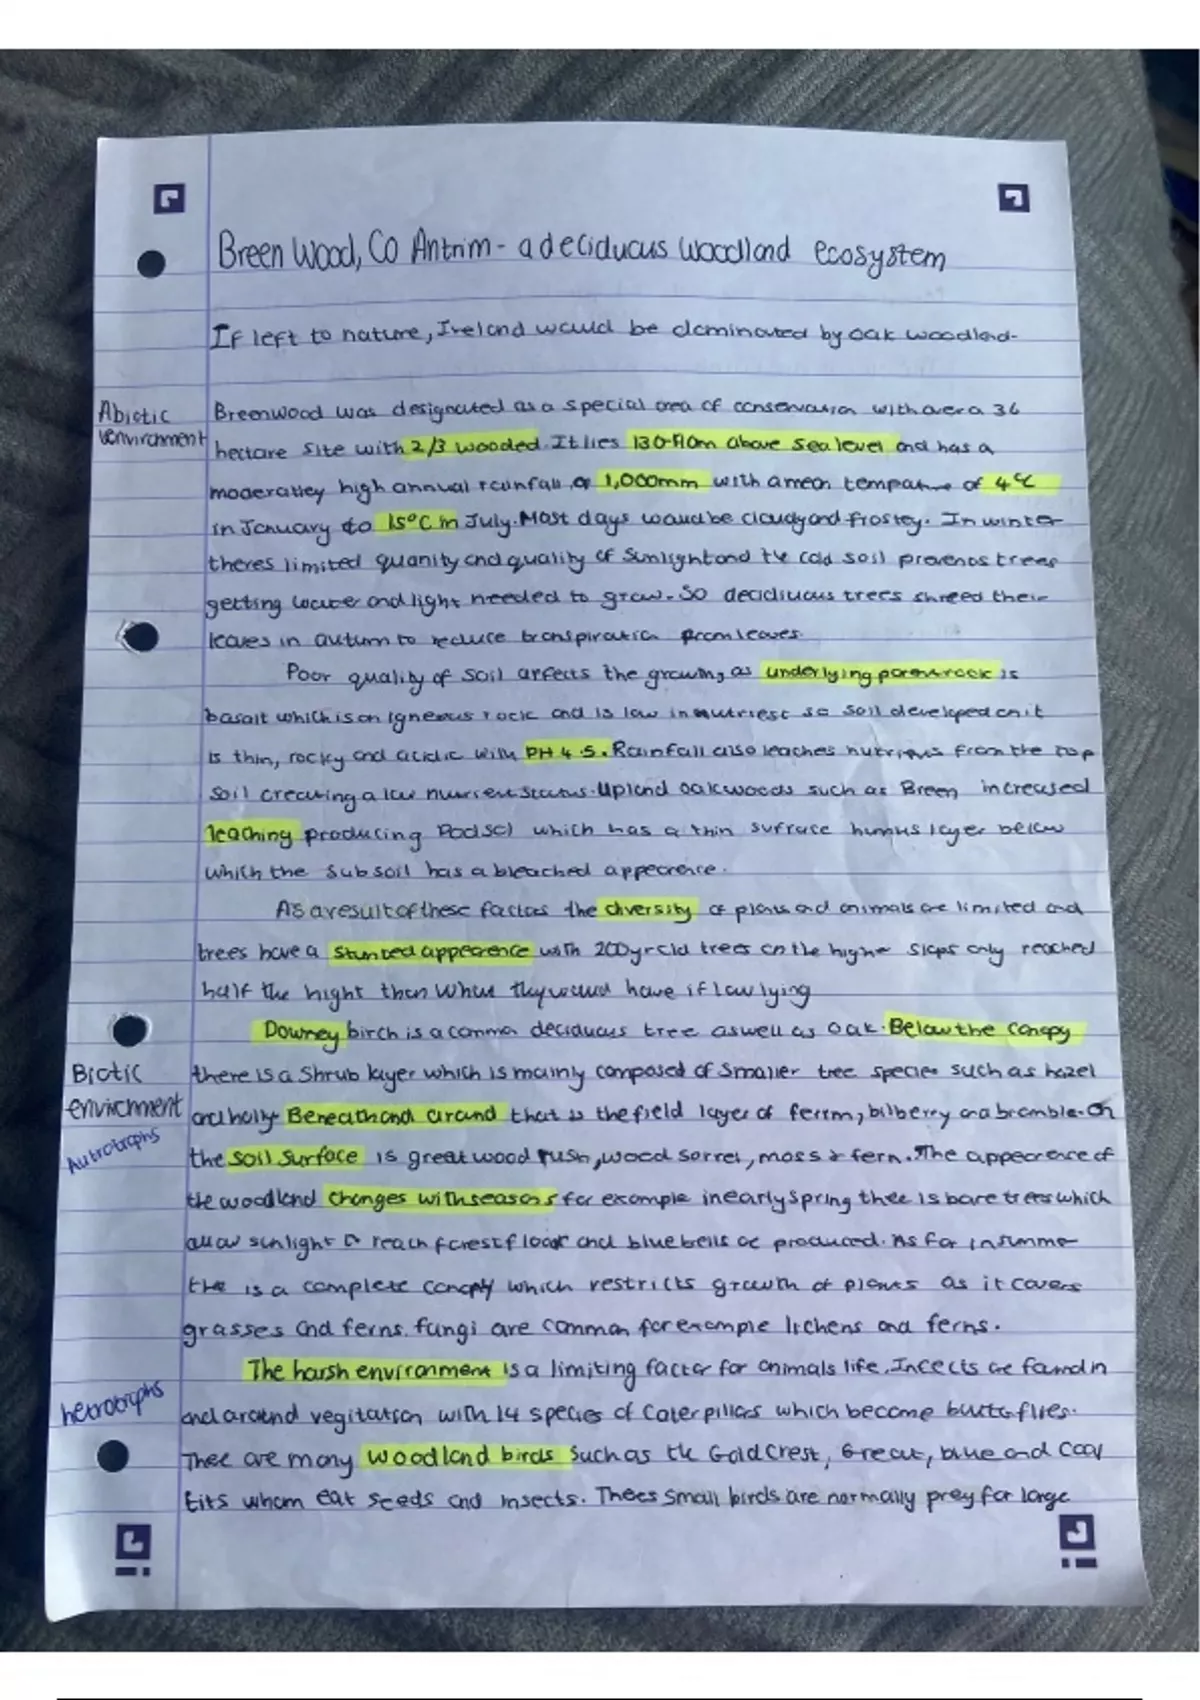 Breen Wood, Co Antrim - a deciducus woodland ecosystem
If left to nature, Ireland would be dominated by oak woodland.
Abiotic environment
Breenwood was designated as a special area of conservation with over a 36
hectare site with 2/3 wooded. It lies 130- above sea level and has a
moderatley high annual rainfall of 1,000mm with a mean tempature of 4°C
in January to 15°C in July. Most days would be cloudy and frostey. In winter
theres limited quanity and quality of sunlight and the cold soil trees
getting water and light needed to grow. So decidiuous trees shreed their
leaves in autum to reduce transpiration from leaves.
Poor quality of soil affects the growing as underlying parent rock is
basalt which is an igneous rock and is low in so soil developed on it
is thin, rocky and acidic with PH 4.5. Rainfall also leaches from the top
soil creating a low status. Upland oakwoods such as Breen increased
leaching producing Podsol which has a thin surface humus layer below
which the subsoil has a bleached appearence.
As a result of these factors the diversity of plants and animals are limited and
trees have a stunted appearence with 200yr old trees on the higher slops only reached
half the hight than what they would have if low lying
Downey birch is a common deciducus tree aswell as oak. Below the canopy
Biotic environment
Autrotrophs
there is a shrub layer which is mainly composed of smaller tree species such as hazel
and holly. Beneath and around that is the field layer of ferrm, bilberry and bramble. On
the soil surface is great wood rush, wood sorrel, moss & fern. The appearence of
the woodland changes with seasons for example in early spring there is bare trees which
allow sunlight to reach forest floor and bluebells are produced. As for in summer
the is a complete canopy which restricts growth of plants as it covers
grasses and ferns. fungi are common for example lichens and ferns.
The harsh environment is a limiting factor for animals life. Incects are found in
hetrotrophs
and around vegitation with 14 species of caterpillars which become butterflies.
There are many woodland birds such as the Goldcrest, Great, blue and coal
tits whom eat seeds and insects. Thees small birds are normally prey for large